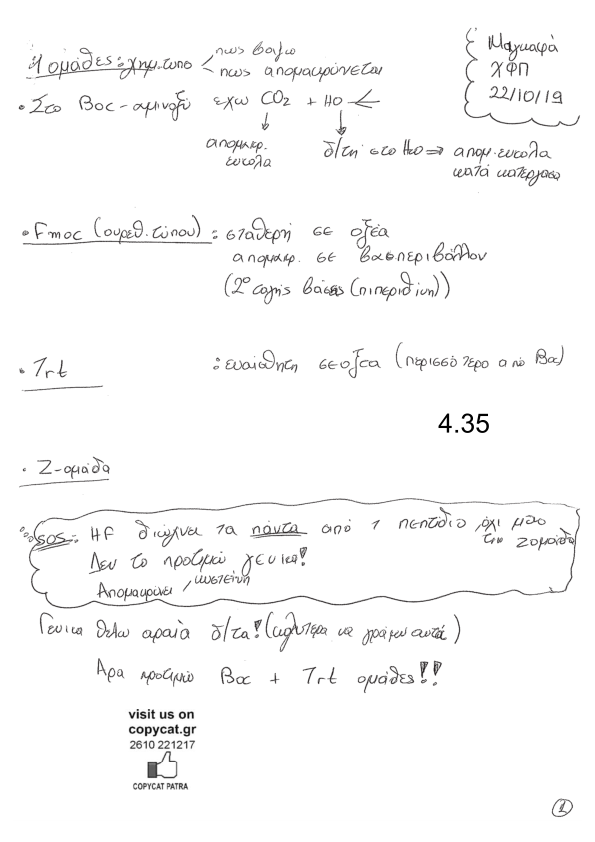 Μαγκαφά
ΧΦΠ
22/10/19
ομάδες: χημ.τυπο
πως βαζω
πως απομακρύνεται
• Στο Boc-αμινοξύ έχω CO2 + HO
απομακρ. ευκολα
δ/τη στο H2O ⇒ απομ. ευκολα
κατά κατεργασ
• Fmoc (ουρεθ. τύπου) : σταθερή σε οξέα
απομακρ. σε βασ περιβάλλον
(2ο ταγής βάσεις (πιπεριδίνη))
• Trt : ευαίσθητη σε οξεα (περισσότερο από Boc)
4.35
• Z-ομάδα
SOS: HF διώχνει τα πάντα από 1 πεπτίδιο, όχι μπο την Zομάδα
Δεν το προτιμώ γενικα!
Απομακρύνει, κυστεΐνη
Γενικα θέλω αραία δ/τα! (καλυτερα να γράφω αυτά)
Αρα προτιμώ Boc + Trt ομάδες!!
visit us on
copycat.gr
2610 221217
COPYCAT PATRA
1